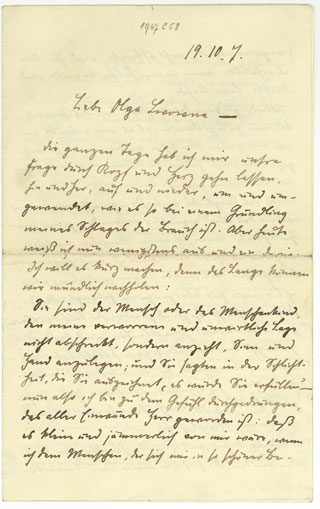 1967 C 58
19.10.7.
Liebe Olga Lwowna —
die ganzen Tage hab ich mir unsre
Frage durch Kopf und Herz gehn lassen,
hin und her, auf und nieder, um und um-
gewendet, wie es so bei einem Gründling
meines Schlages der Brauch ist. Aber heute
weiß ich nun wenigstens aus und ein darin.
Ich will es kurz machen, denn das Lange können
wir mündlich nachholen:
Sie sind der Mensch oder das Menschenkind,
den meine verworrene und unwirtliche Lage
nicht abschreckt, sondern anzieht, Sinn und
Hand anzulegen, und Sie sagten in der Schlicht-
heit, die Sie auszeichnet, es würde Sie erfüllen —
nun also ich bin zu dem Gefühl durchgedrungen,
das aller Einwände Herr geworden ist: daß
es klein und jämmerlich von mir wäre, wenn
ich dem Menschen, der sich mir in so schöner Be-